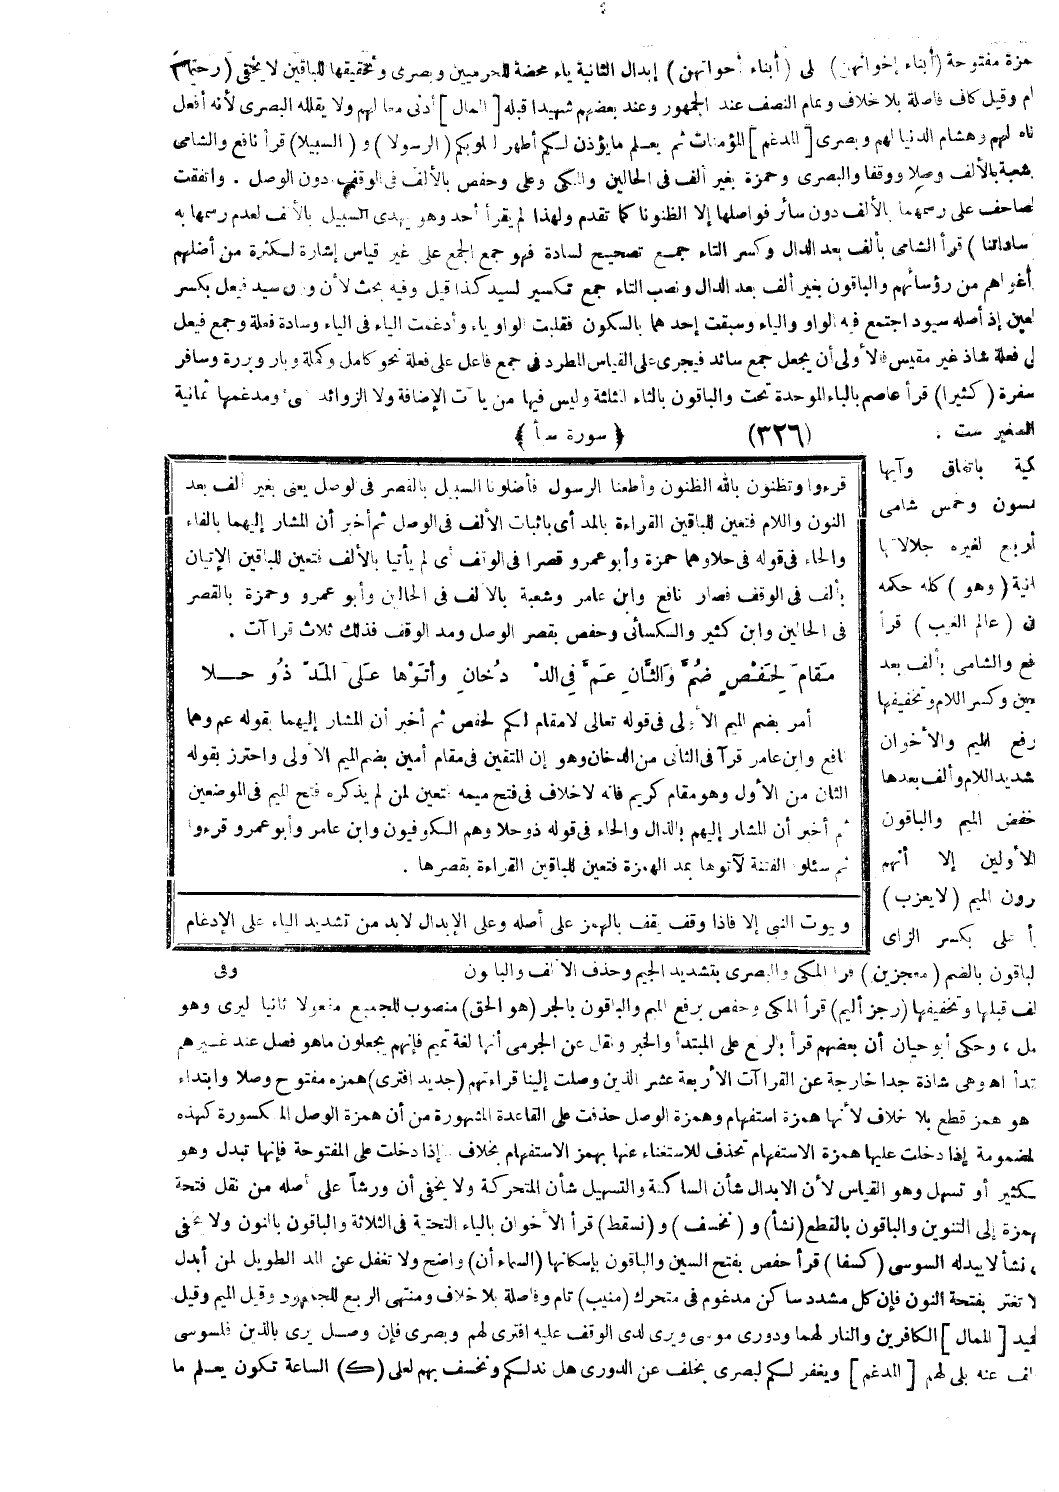 همزة مفتوحة (أبناء إخوانهن) لى (أبناء أخواتهن) إبدال الثانية ياء محضة للحرميين وبصرى وتحقيقها للباقين لا يخفى (رحيما)
ام وقيل كاف فاصلة بلا خلاف وتمام النصف عند الجمهور وعند بعضهم شهيدا قبله [الممال] أدنى معا لهم ولا يقلله البصرى لأنه أفعل
ناه لهم وهشام الدنيا لهم وبصرى [المدغم] المؤمنات ثم يعلم ما يؤذن لكم أطهر لقلوبكم (الرسولا) و (السبيلا) قرأ نافع والشامى
شعبة بالألف وصلا ووقفا والبصرى وحمزة بغير ألف فى الحالين والمكى وعلى وحفص بالألف فى الوقف دون الوصل . واتفقت
لمصاحف على رسمهما بالألف دون سائر فواصلها إلا الظنونا كما تقدم ولهذا لم يقرأ أحد وهو يهدى السبيل بالألف لعدم رسمها به
ساداتنا) قرأ الشامى بألف بعد الدال وكسر التاء جمع تصحيح لسادة فهو جمع الجمع على غير قياس إشارة لكثرة من أضلهم
أغواهم من رؤسائهم والباقون بغير ألف بعد الدال ونصب التاء جمع تكسير لسيد كذا قيل وفيه بحث لأن وزن سيد فيعل بكسر
لعين إذ أصله سيود اجتمع فيه الواو والياء وسبقت إحداهما بالسكون فقلبت الواو ياء وأدغمت الياء فى الياء وسادة فعلة وجمع فيعل
لى فعلة شاذ غير مقيس فالأولى أن يجعل جمع سائد فيجرى على القياس المطرد فى جمع فاعل على فعلة نحو كامل وكملة وبار وبررة وسافر
سفرة (كثيرا) قرأ عاصم بالباء الموحدة تحت والباقون بالثاء المثلثة وليس فيها من ياآت الإضافة ولا الزوائد شىء ومدغمها ثمانية
الصغير ست . (٣٢٦) ﴿ سورة سبأ ﴾
كية باتفاق وآيها
مسون وخمس شامى
أربع لغيره جلالاتها
انية (وهو) كله حكمه
ن (عالم الغيب) قرأ
فع والشامى بألف بعد
عين وكسر اللام وتخفيفها
رفع الميم والأخوان
شديد اللام وألف بعدها
خفض الميم والباقون
الأولين إلا أنهم
رون الميم (لا يعزب)
أ على بكسر الزاى
قرءوا وتظنون بالله الظنون وأطعنا الرسول فأضلونا السبيل بالقصر فى الوصل يعنى بغير ألف بعد
النون واللام فتعين للباقين القراءة بالمد أى باثبات الألف فى الوصل ثم أخبر أن المشار إليهما بالفاء
والحاء فى قوله فى حلا وهما حمزة وأبو عمرو قصرا فى الوقف أى لم يأتيا بالألف فتعين للباقين الإتيان
بألف فى الوقف فصار نافع وابن عامر وشعبة بالألف فى الحالين وأبو عمرو وحمزة بالقصر
فى الحالين وابن كثير والكسائى وحفص بقصر الوصل ومد الوقف فذلك ثلاث قراآت .
مَقَامَ لِحَفْصٍ ضُمَّ وَالثَّانِ عَمَّ فِى الدْ دُخَانِ وأتَوْهَا عَلَى المَدِّ ذُو حَلَا
أمر بضم الميم الأولى فى قوله تعالى لا مقام لكم لحفص ثم أخبر أن المشار إليهما بقوله عم وهما
نافع وابن عامر قرآ فى الثانى من الدخان وهو إن المتقين فى مقام أمين بضم الميم الأولى واحترز بقوله
الثان من الأول وهو مقام كريم فانه لا خلاف فى فتح ميمه فتعين لمن لم يذكره فتح الميم فى الموضعين
ثم أخبر أن المشار إليهم بالذال والحاء فى قوله ذو حلا وهم الكوفيون وابن عامر وأبو عمرو قرءوا
ثم سئلوا الفتنة لآتوها بمد الهمزة فتعين للباقين القراءة بقصرها .
وبيوت النبى إلا فاذا وقف يقف بالهمز على أصله وعلى الإبدال لابد من تشديد الياء على الإدغام
لباقون بالضم (معجزين) قرأ المكى والبصرى بتشديد الجيم وحذف الألف والباقون وفى
لف قبلها وتخفيفها (رجز أليم) قرأ المكى وحفص برفع الميم والباقون بالجر (هو الحق) منصوب للجميع مفعولا ثانيا ليرى وهو
مل ، وحكى أبو حيان أن بعضهم قرأ بالرفع على المبتدأ والخبر ونقل عن الجرمى أنها لغة تميم فإنهم يجعلون ما هو فصل عند غيرهم
تدأ اه وهى شاذة جدا خارجة عن القراآت الأربعة عشر الذين وصلت إلينا قراءتهم (جديد افترى) همزه مفتوح وصلا وابتداء
هو همز قطع بلا خلاف لأنها همزة استفهام وهمزة الوصل حذفت على القاعدة المشهورة من أن همزة الوصل المكسورة كهذه
لمضمومة إذا دخلت عليها همزة الاستفهام تحذف للاستغناء عنها بهمز الاستفهام بخلاف إذا دخلت على المفتوحة فإنها تبدل وهو
لكثير أو تسهل وهو القياس لأن الابدال شأن الساكنة والتسهيل شأن المتحركة ولا يخفى أن ورشا على أصله من نقل فتحة
همزة إلى التنوين والباقون بالقطع (نشأ) و (نخسف) و (نسقط) قرأ الأخوان بالياء التحتية فى الثلاثة والباقون بالنون ولا يخفى
ن نشأ لا يبدله السوسى (كسفا) قرأ حفص بفتح السين والباقون بإسكانها (السماء أن) واضح ولا تغفل عن المد الطويل لمن أبدل
لا تغتر بفتحة النون فإن كل مشدد ساكن مدغوم فى متحرك (منيب) تام وفاصلة بلا خلاف ومنتهى الربع للجمهور وقيل الميم وقيل
لحيد [الممال] الكافرين والنار لهما ودورى موسى ويرى لدى الوقف عليه افترى لهم وبصرى فإن وصل يرى بالذين فلسوسى
لف عنه بلى لهم [المدغم] ويغفر لكم لبصرى بخلف عن الدورى هل ندلكم ونخسف بهم لعلى (ك) الساعة تكون يعلم ما